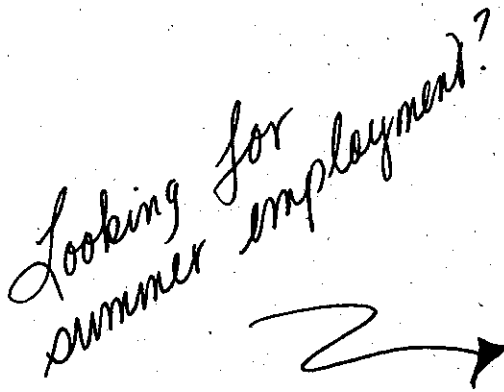 Looking for
summer employment?